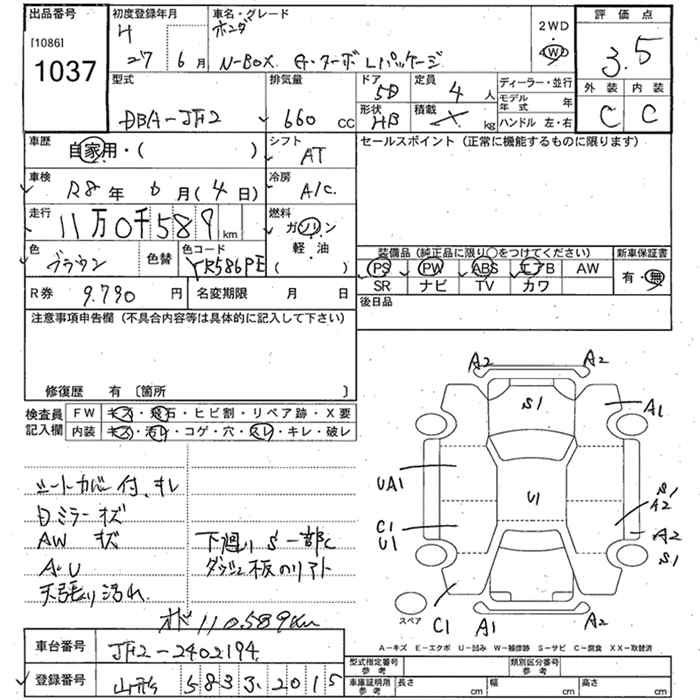 出品番号 初度登録年月 車名・グレード 評価点
[1086] H ホンダ 2WD
1037 27 6月 N-BOX G・ターボ Lパッケージ 4W 3.5
型式 排気量 ドア 5D 定員 4人 ディーラー・並行 外装 内装
DBA-JF2 660 cc 形状 HB 積載 kg モデル年式 年 C C
ハンドル 左・右
車歴 自家用・( ) シフト AT セールスポイント (正常に機能するものに限ります)
車検 R8年 6月(4日) 冷房 A/C
走行 11万0千589km 燃料 ガソリン
軽・油
( )
色 ブラウン 色替 色コード YR586PE 装備品 (純正品に限り○をつけてください) 新車保証書
PS PW ABS エアB AW 有・無
SR ナビ TV カワ
R券 9.790円 名変期限 月 日 後日品
注意事項申告欄 (不具合内容等は具体的に記入して下さい)
修復歴 有 〔箇所 〕
検査員記入欄 FW キズ・飛石・ヒビ割・リペア跡・X要
内装 キズ・汚レ・コゲ・穴・スレ・キレ・破レ
A2 A2
S1 A1
UA1 U1 S1
A2
C1 A2
U1 S1
C1 A1 A2
スペア
シートカバー付、キレ
日ミラーキズ
AW キズ 下廻り S一部C
A・U ダッシュ板のリアト
天張り汚れ
オド110.589km
A-キズ E-エクボ U-凹み W-補修跡 S-サビ C-腐食 XX-取替済
車台番号 JF2-2402194 型式指定番号 参考 類別区分番号 参考
登録番号 山形 583 3.2015 車庫証明用 参考 長さ cm 幅 cm 高さ cm